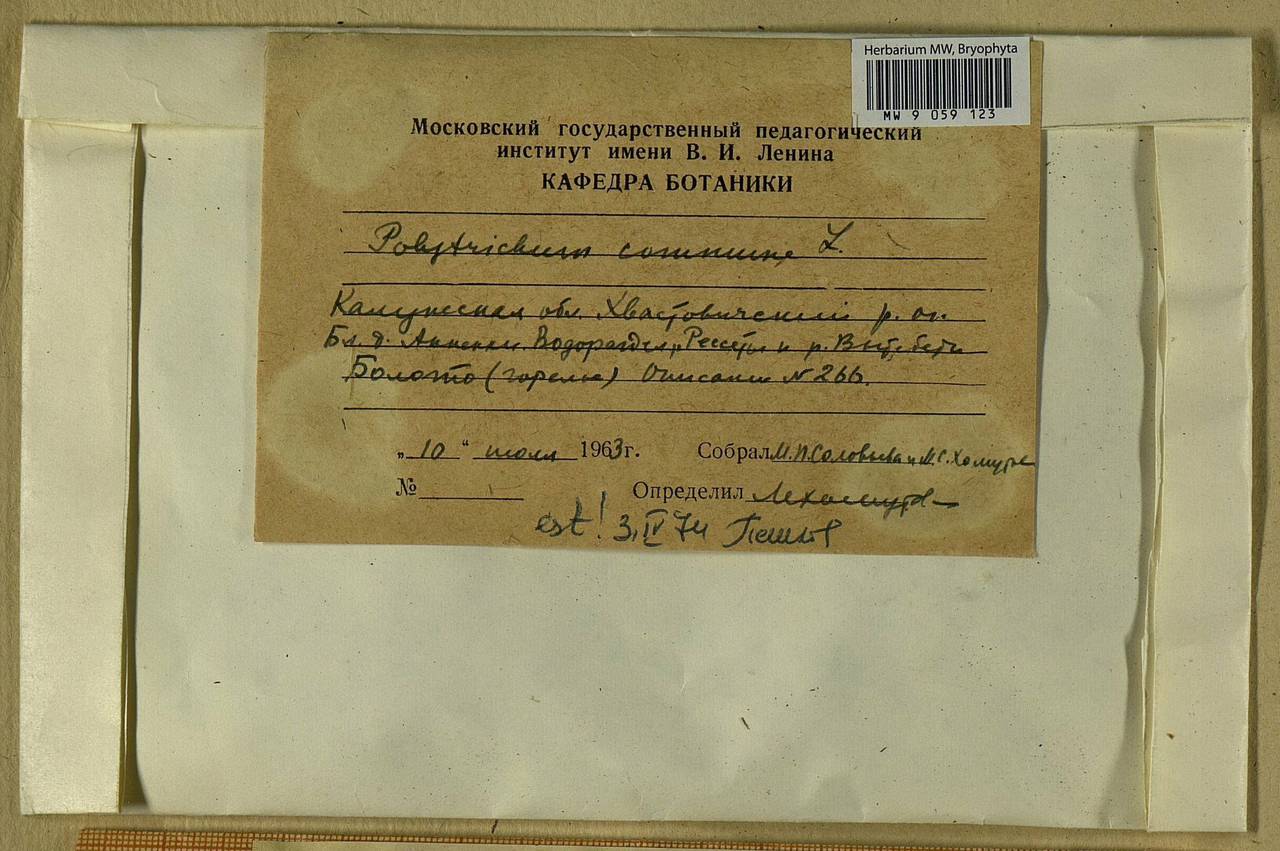 Herbarium MW, Bryophyta
MW 9 059 123
Московский государственный педагогический
институт имени В. И. Ленина
КАФЕДРА БОТАНИКИ
Polytrichum commune L.
Калужская обл. Хвастовический р. он.
Бл. д. Анненки. Водораздел р. Рессеты и р. Вытебети
Болото (горелое) Описание № 266.
„ 10 “ июля 1963г. Собрал М.П. Соловьева и М.С. Хомутова
№ Определил
est! 3.IV 74